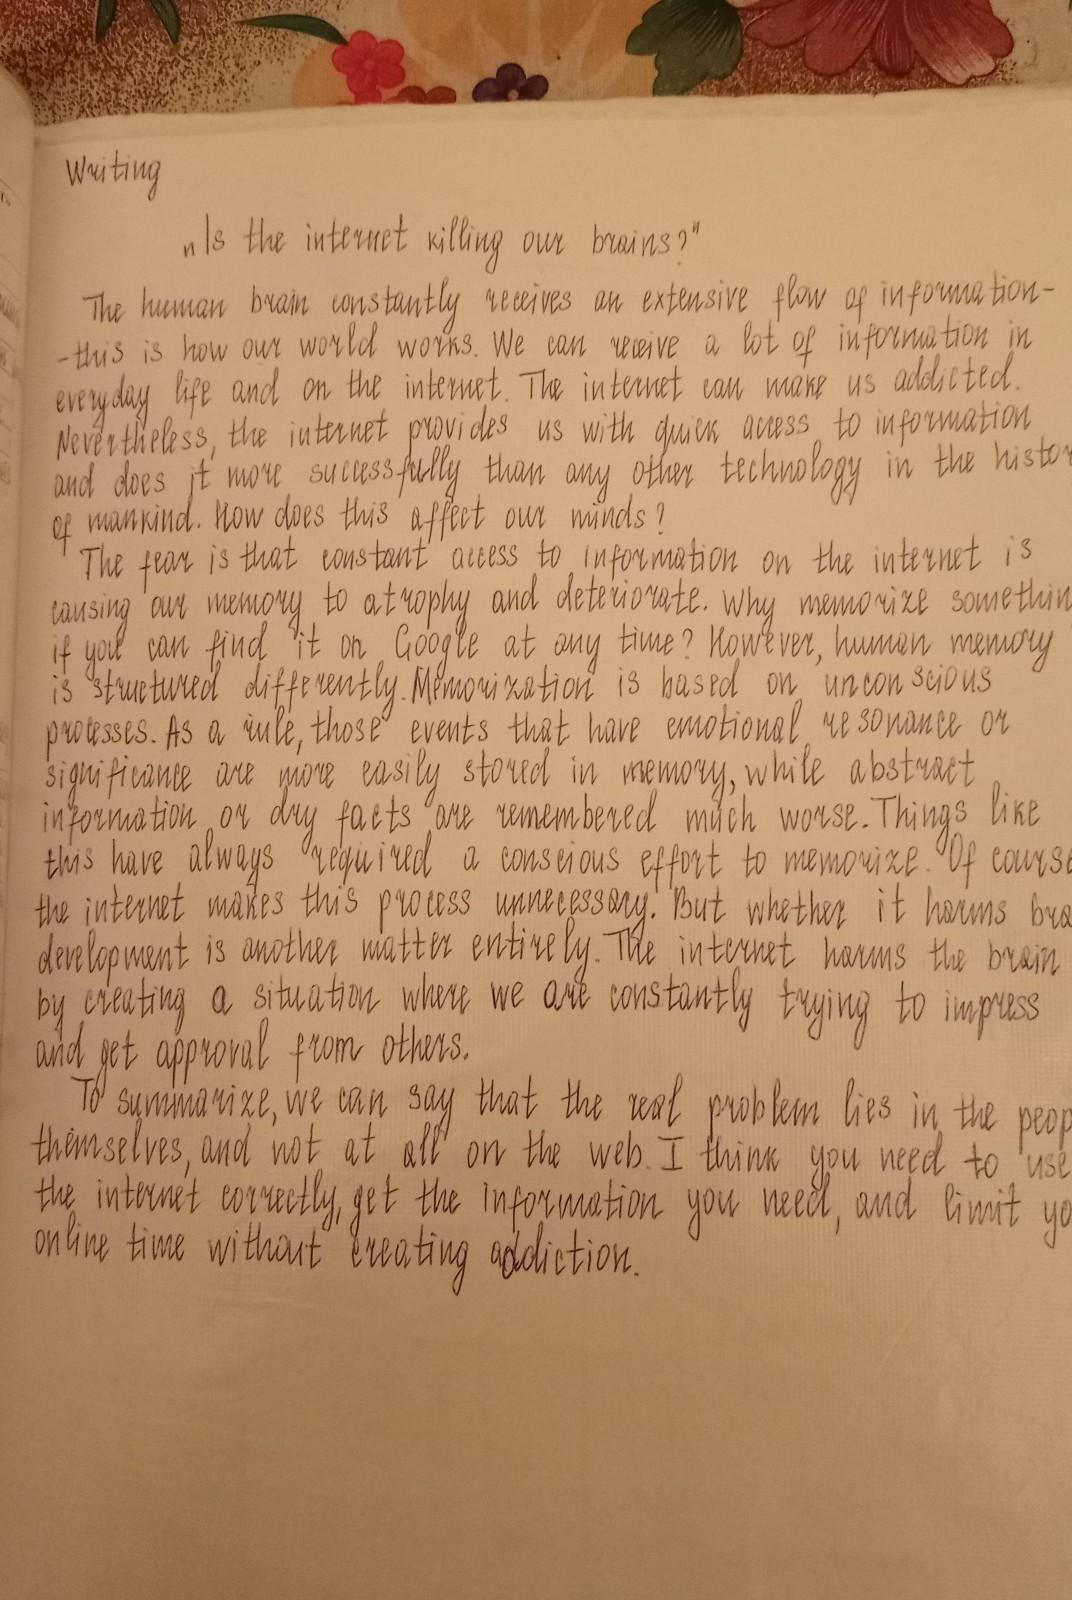 Writing
„Is the internet killing our brains?"
The human brain constantly receives an extensive flow of information-
-this is how our world works. We can receive a lot of information in
everyday life and on the internet. The internet can make us addicted.
Nevertheless, the internet provides us with quick access to information
and does it more successfully than any other technology in the histor
of mankind. How does this affect our minds?
The fear is that constant access to information on the internet is
causing our memory to atrophy and deteriorate. Why memorize somethin
if you can find it on Google at any time? However, human memory
is structured differently. Memorization is based on unconscious
processes. As a rule, those events that have emotional resonance or
significance are more easily stored in memory, while abstract
information or dry facts are remembered much worse. Things like
this have always required a conscious effort to memorize. Of course
the internet makes this process unnecessary. But whether it harms bra
development is another matter entirely. The internet harms the brain
by creating a situation where we are constantly trying to impress
and get approval from others.
To summarize, we can say that the real problem lies in the peop
themselves, and not at all on the web. I think you need to use
the internet correctly, get the information you need, and limit yo
online time without creating addiction.